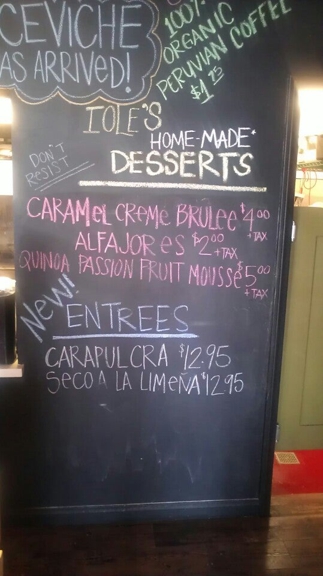 CEVICHE
AS ARRIVED!
100%
ORGANIC
PERUVIAN COFFEE
IOLE'S
HOME-MADE*
DON'T
RESIST
DESSERTS
CARAMEL CREME BRÛLEE $4.00
+TAX
ALFAJORES $2.00
+TAX
QUINOA PASSION FRUIT MOUSSE $5.00
+TAX
NEW!
ENTREES
CARAPULCRA $12.95
SECO A LA LIMEÑA $12.95